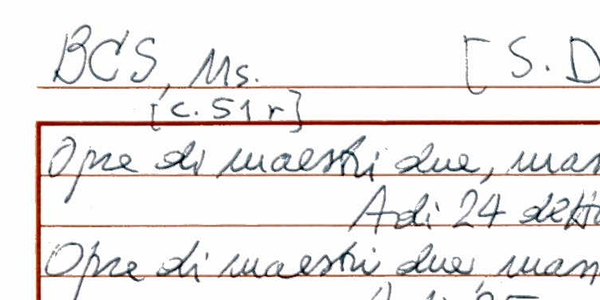 BCS, Ms. [S. D
[c. 51 r]
Opre di maestri due, man
Adi 24 detto
Opre di maestri due man